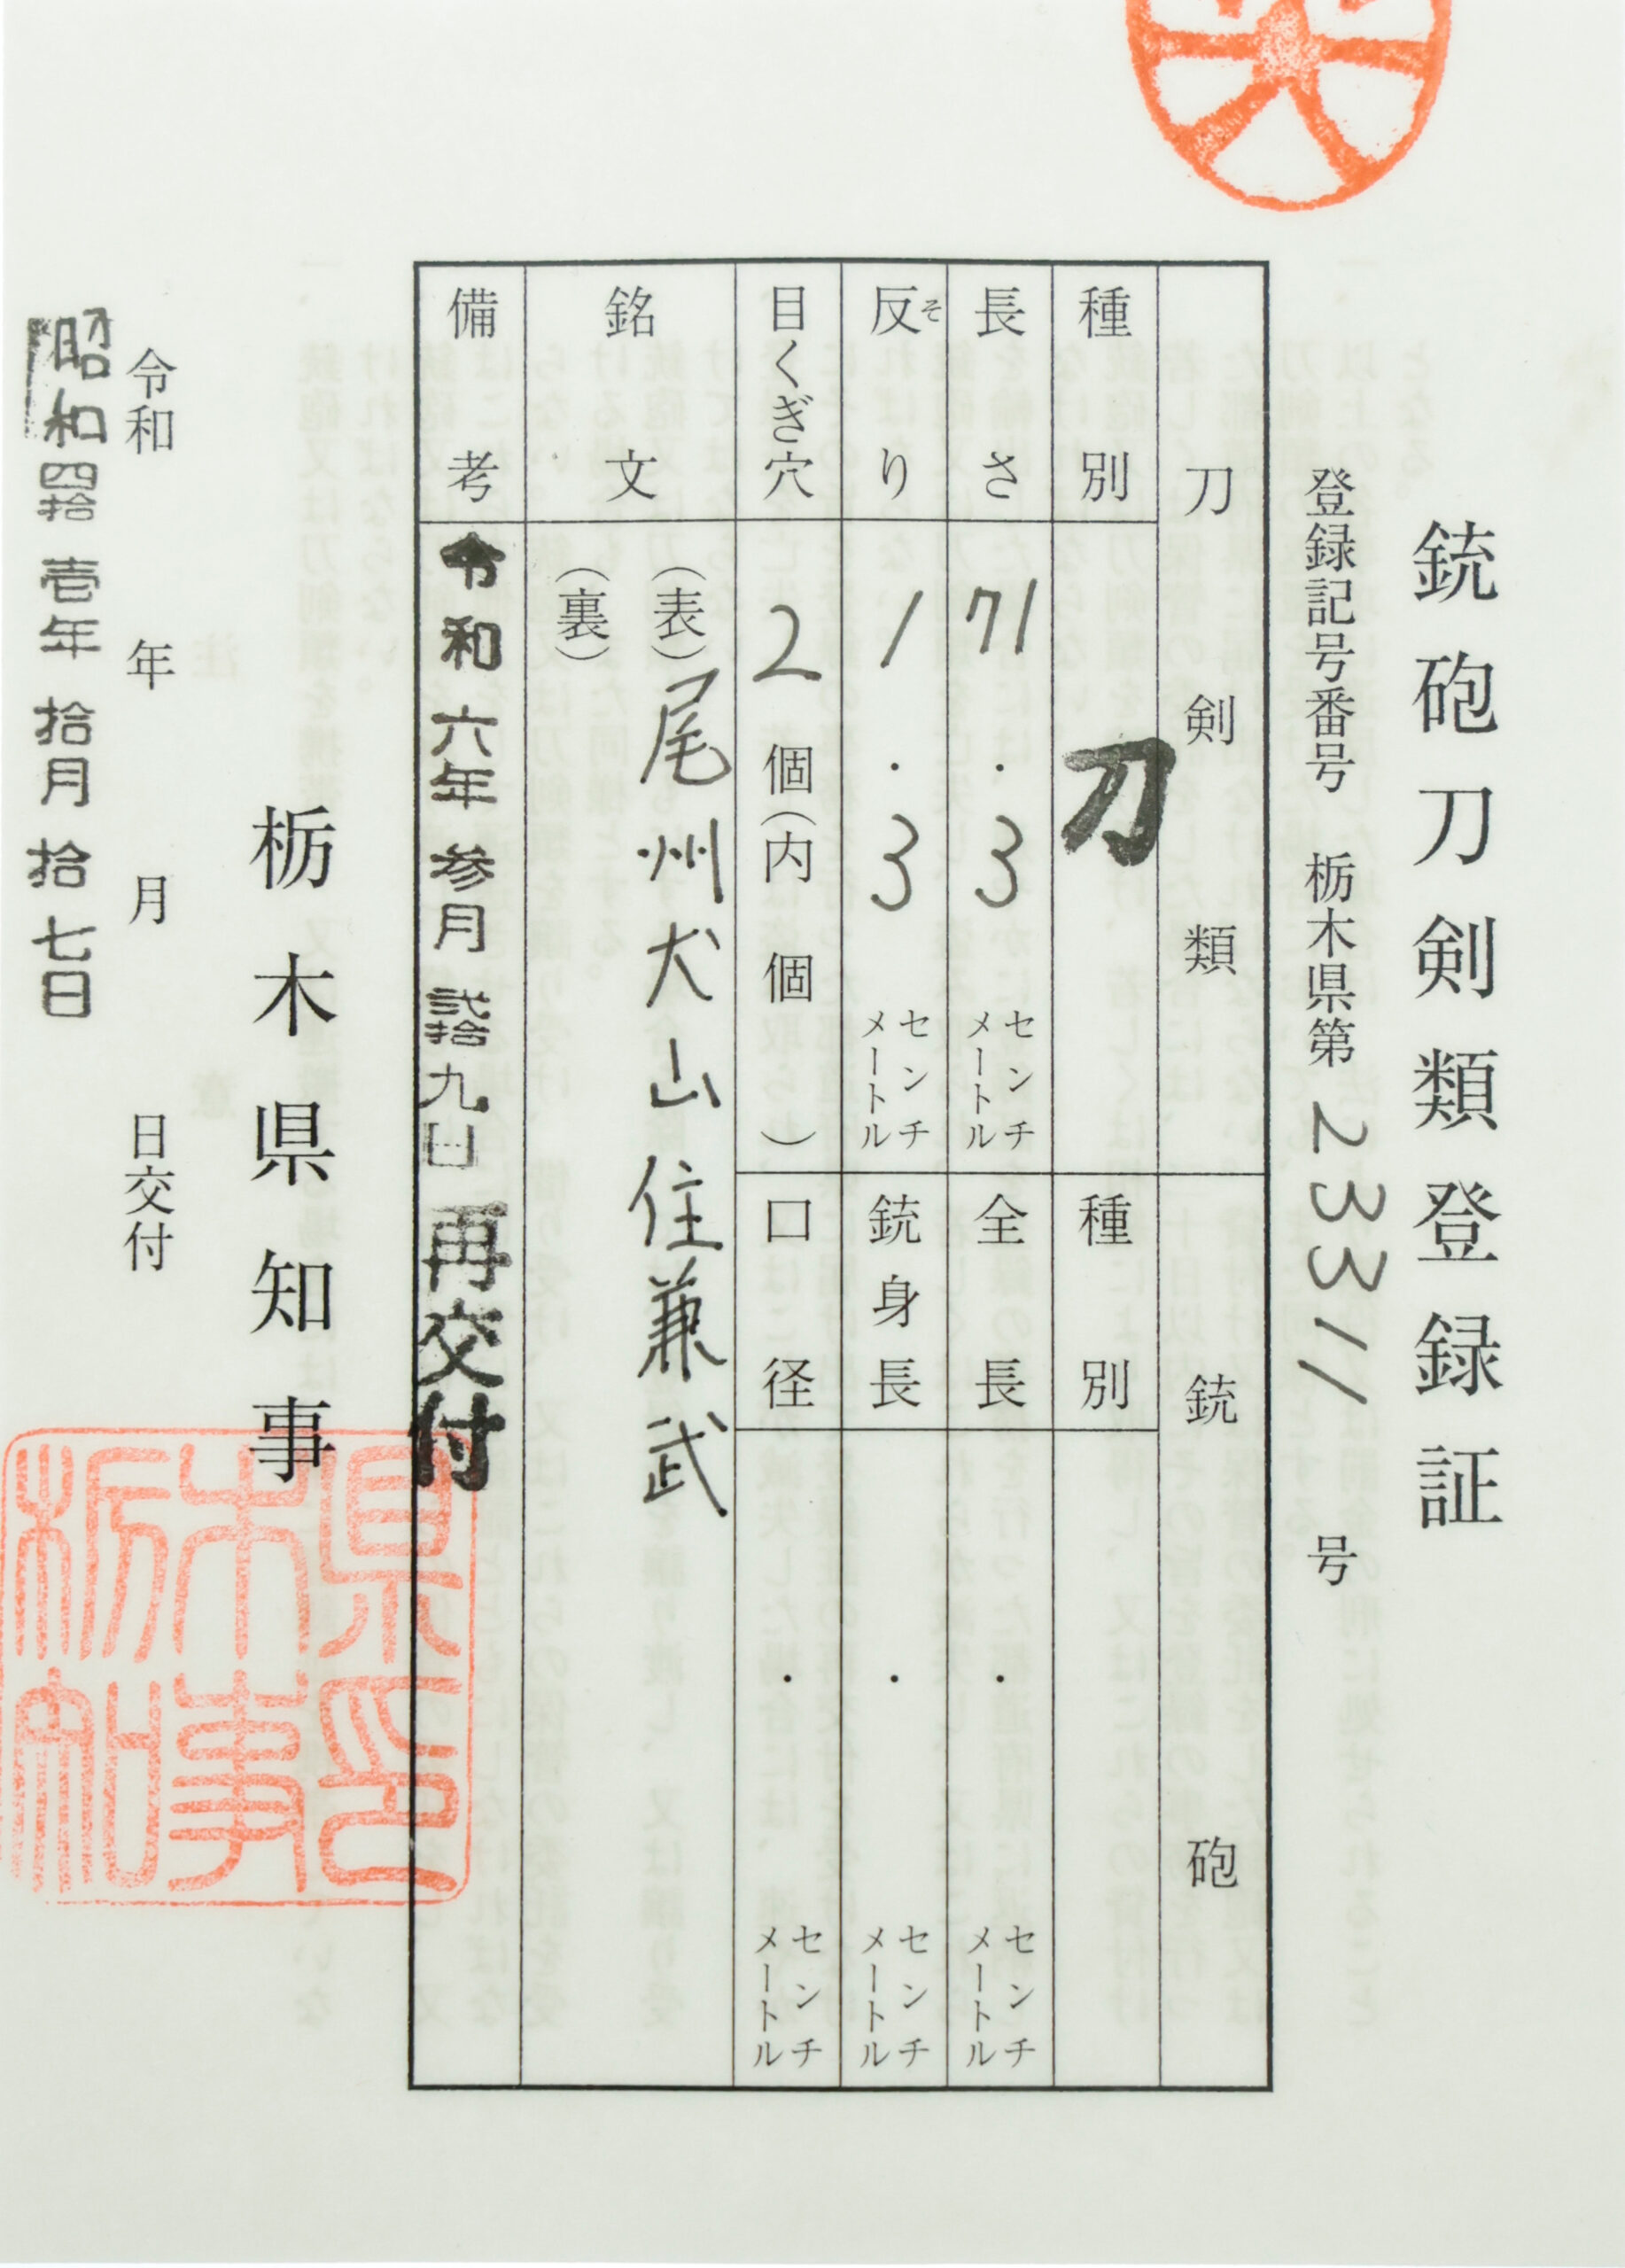 銃砲刀剣類登録証
登録記号番号 栃木県第 23311 号
刀剣類
種別 刀
長さ 71.3 センチメートル
反り 1.3 センチメートル
そ
目くぎ穴 2個(内 個)
銃砲
種別
全長 . センチメートル
銃身長 . センチメートル
口径 . センチメートル
銘文 (表)尾州犬山住兼武
(裏)
備考 令和六年参月弐拾九日再交付
栃木県知事
栃木県知事印
令和 年 月 日交付
昭和四拾壱年拾月拾七日